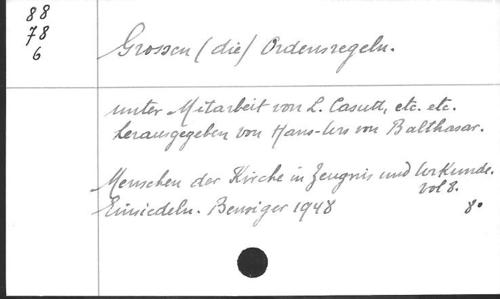 88
78
6
Grossen (die) Ordensregeln.
unter Mitarbeit von L. Casutt, etc. etc.
herausgegeben von Hans-Urs von Balthasar.
Menschen der Kirche in Zeugnis und Urkunde.
vol 8.
Einsiedeln. Benziger 1948
8º